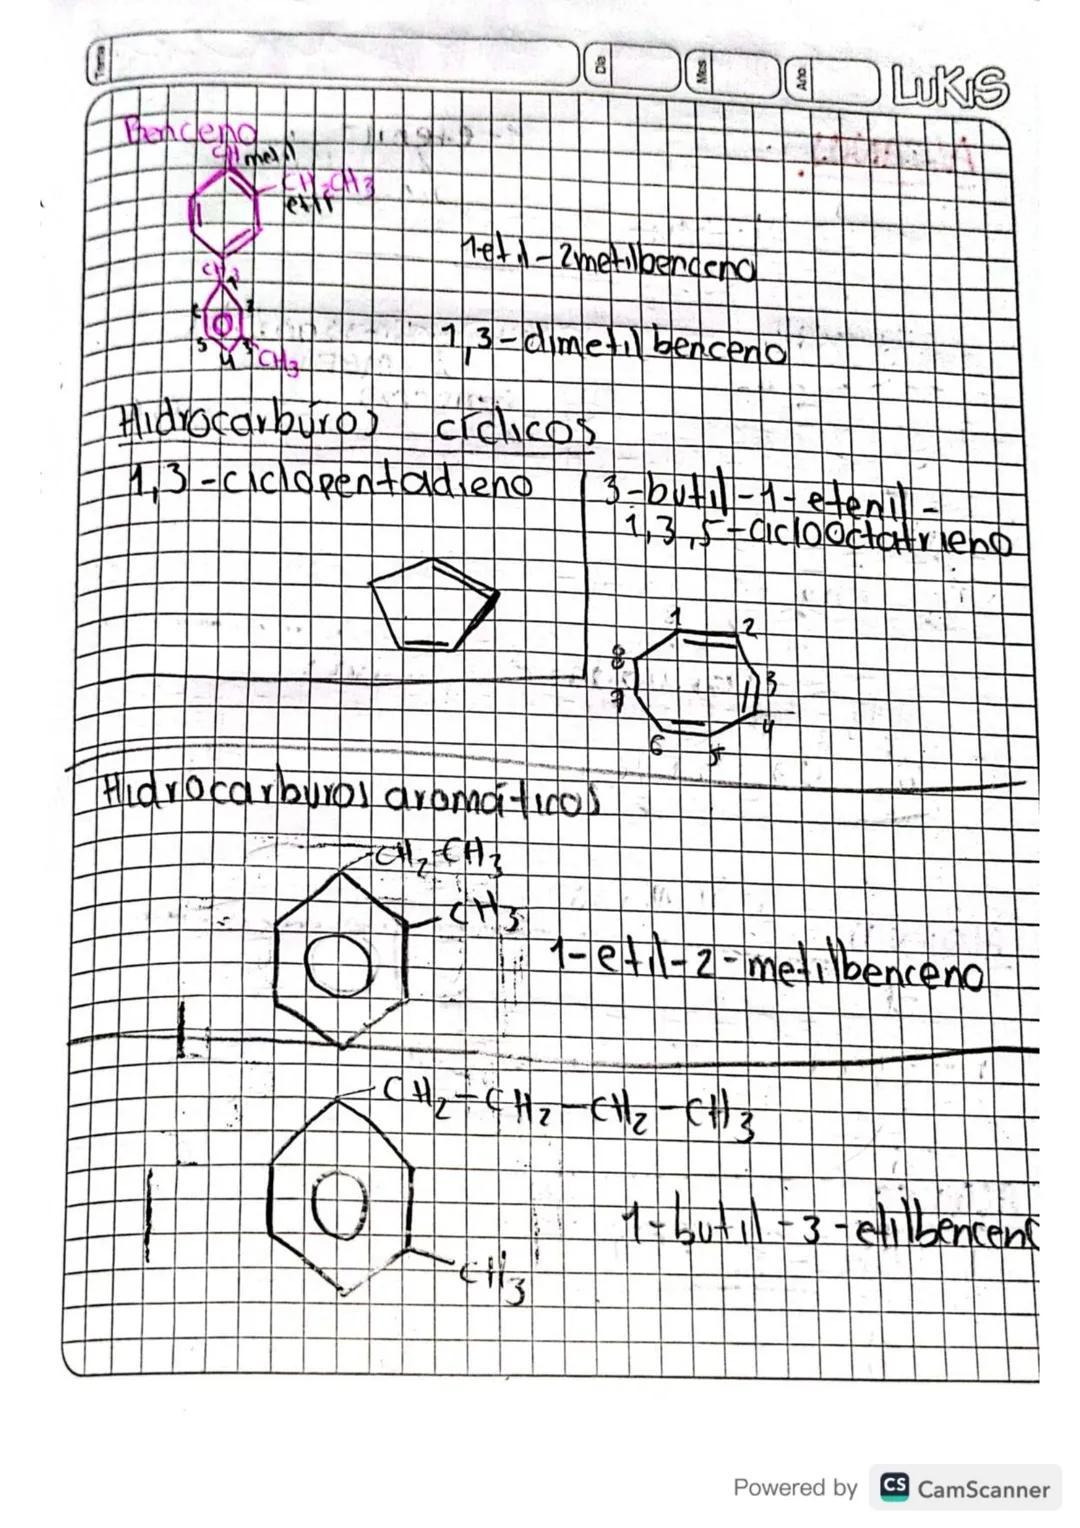 Tema
Día
Mes
Año
LUKiS
Benceno
CH metil
CH2CH3
etil
1-etil-2metilbenceno
CH3
1
2
3
4
5
CH3
1,3-dimetil benceno
Hidrocarburos cíclicos
1,3-ciclopentadieno
3-butil-1-etenil-
1,3,5-ciclooctatrieno
1
2
3
4
5
6
7
8
Hidrocarburos aromáticos
CH2-CH3
CH3
1-etil-2-metilbenceno
CH2-CH2-CH2-CH3
1-butil-3-etilbenceno
CH3
Powered by CS CamScanner